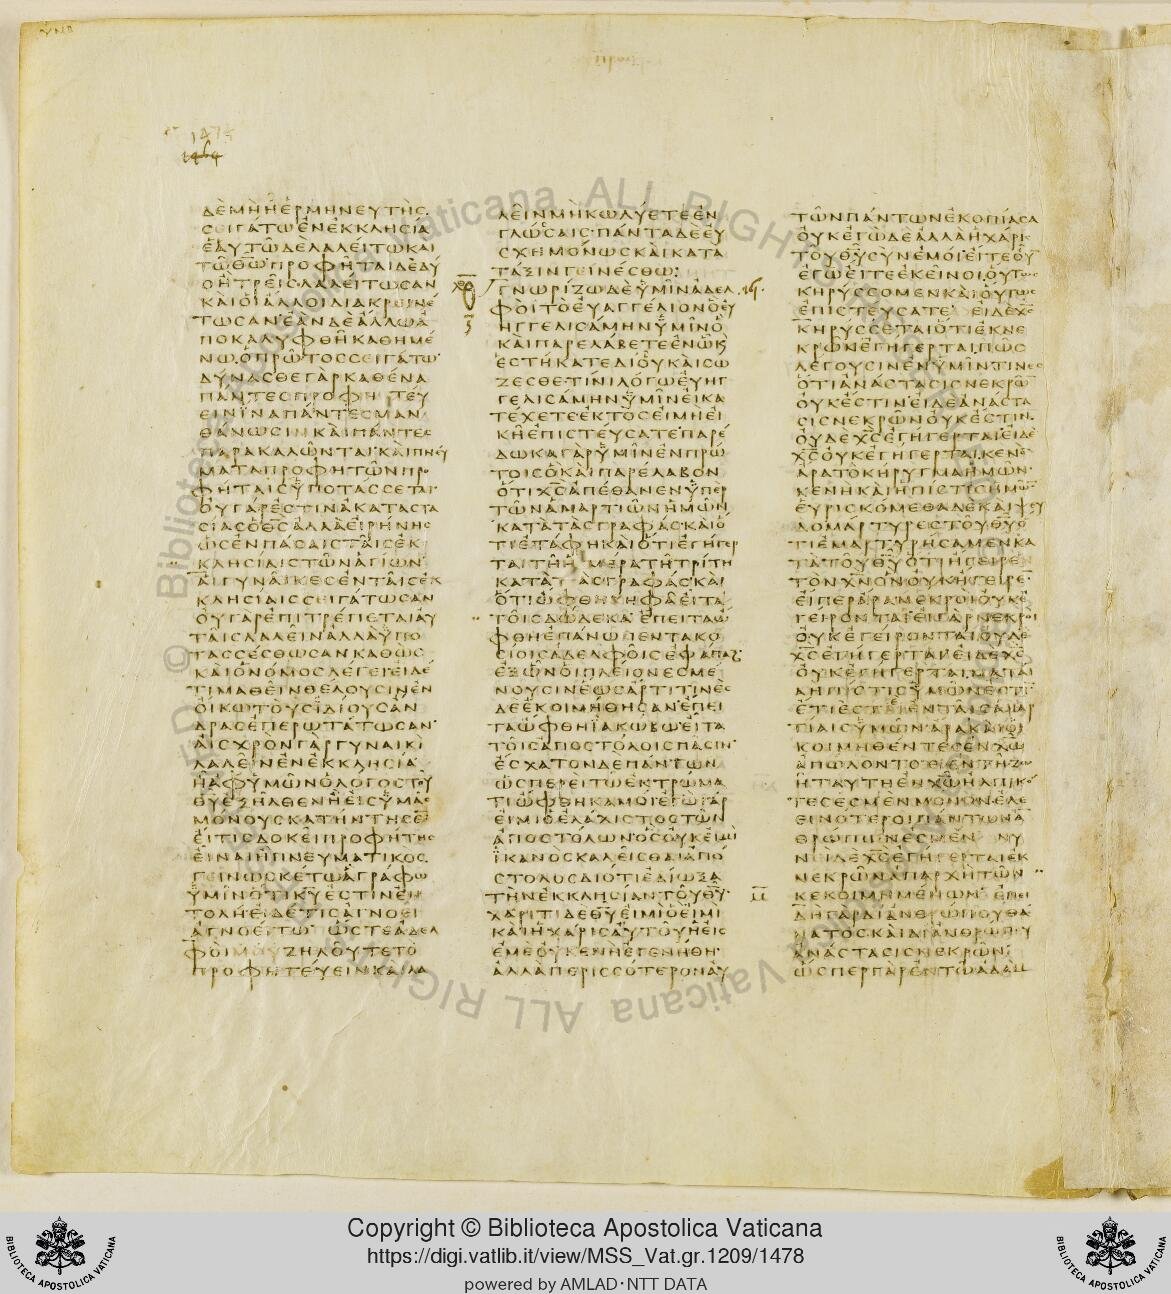 ΔΕΜΗΗΕΡΜΗΝΕΥΤΗΣ
ΣΕΙΓΑΤΩΕΝΕΚΚΛΗΣΙΑ
ΕΑΥΤΩΔΕΛΑΛΕΙΤΩΚΑΙ
ΤΩΘΩΠΡΟΦΗΤΑΙΔΕΔΥ
ΟΗΤΡΕΙΣΛΑΛΕΙΤΩΣΑΝ
ΚΑΙΟΙΑΛΛΟΙΔΙΑΚΡΕΙΝΕ
ΤΩΣΑΝΕΑΝΔΕΑΛΛΩΑ
ΠΟΚΑΛΥΦΘΗΚΑΘΗΜΕ
ΝΩΟΠΡΩΤΟΣΣΕΙΓΑΤΩ
ΔΥΝΑΣΘΕΓΑΡΚΑΘΕΝΑ
ΠΑΝΤΕΣΠΡΟΦΗΤΕΥ
ΕΙΝΙΝΑΠΑΝΤΕΣΜΑΝ
ΘΑΝΩΣΙΝΚΑΙΠΑΝΤΕΣ
ΠΑΡΑΚΑΛΩΝΤΑΙΚΑΙΠΝΕΥ
ΜΑΤΑΠΡΟΦΗΤΩΝΠΡΟ
ΦΗΤΑΙΣΫΠΟΤΑΣΣΕΤΑΙ
ΟΥΓΑΡΕΣΤΙΝΑΚΑΤΑΣΤΑ
ΣΙΑΣΟΘΣΑΛΛΑΕΙΡΗΝΗΣ
ΩΣΕΝΠΑΣΑΙΣΤΑΙΣΕΚ
ΚΛΗΣΙΑΙΣΤΩΝΑΓΙΩΝ
ΑΙΓΥΝΑΙΚΕΣΕΝΤΑΙΣΕΚ
ΚΛΗΣΙΑΙΣΣΕΙΓΑΤΩΣΑΝ
ΟΥΓΑΡΕΠΙΤΡΕΠΕΤΑΙΑΥ
ΤΑΙΣΛΑΛΕΙΝΑΛΛΑΫΠΟ
ΤΑΣΣΕΣΘΩΣΑΝΚΑΘΩΣ
ΚΑΙΟΝΟΜΟΣΛΕΓΕΙΕΙΔΕ
ΤΙΜΑΘΕΙΝΘΕΛΟΥΣΙΝΕΝ
ΟΙΚΩΤΟΥΣΙΔΙΟΥΣΑΝ
ΔΡΑΣΕΠΕΡΩΤΑΤΩΣΑΝ
ΑΙΣΧΡΟΝΓΑΡΓΥΝΑΙΚΙ
ΛΑΛΕΙΝΕΝΕΚΚΛΗΣΙΑ
ΗΑΦΫΜΩΝΟΛΟΓΟΣΤΟΥ
ΘΥΕΞΗΛΘΕΝΗΕΙΣΫΜΑΣ
ΜΟΝΟΥΣΚΑΤΗΝΤΗΣΕΝ
ΕΙΤΙΣΔΟΚΕΙΠΡΟΦΗΤΗΣ
ΕΙΝΑΙΗΠΝΕΥΜΑΤΙΚΟΣ
ΓΕΙΝΩΣΚΕΤΩΑΓΡΑΦΩ
ΫΜΙΝΟΤΙΚΥΕΣΤΙΝΕΝ
ΤΟΛΗΕΙΔΕΤΙΣΑΓΝΟΕΙ
ΑΓΝΟΕΙΤΩΩΣΤΕΑΔΕΛ
ΦΟΙΜΟΥΖΗΛΟΥΤΕΤΟ
ΠΡΟΦΗΤΕΥΕΙΝΚΑΙΛΑ
ΛΕΙΝΜΗΚΩΛΥΕΤΕΕΝ
ΓΛΩΣΣΑΙΣΠΑΝΤΑΔΕΕΥ
ΣΧΗΜΟΝΩΣΚΑΙΚΑΤΑ
ΤΑΞΙΝΓΕΙΝΕΣΘΩ
ΓΝΩΡΙΖΩΔΕΫΜΙΝΑΔΕΛ
ΦΟΙΤΟΕΥΑΓΓΕΛΙΟΝΟΕΥ
ΗΓΓΕΛΙΣΑΜΗΝΫΜΙΝΟ
ΚΑΙΠΑΡΕΛΑΒΕΤΕΕΝΩΚ
ΕΣΤΗΚΑΤΕΔΙΟΥΚΑΙΣΩ
ΖΕΣΘΕΤΙΝΙΛΟΓΩΕΥΗΓ
ΓΕΛΙΣΑΜΗΝΫΜΙΝΕΙΚΑ
ΤΕΧΕΤΕΕΚΤΟΣΕΙΜΗΕΙ
ΚΗΕΠΙΣΤΕΥΣΑΤΕΠΑΡΕ
ΔΩΚΑΓΑΡΫΜΙΝΕΝΠΡΩ
ΤΟΙΣΟΚΑΙΠΑΡΕΛΑΒΟΝ
ΟΤΙΧΣΑΠΕΘΑΝΕΝΫΠΕΡ
ΤΩΝΑΜΑΡΤΙΩΝΗΜΩΝ
ΚΑΤΑΤΑΣΓΡΑΦΑΣΚΑΙΟ
ΤΙΕΤΑΦΗΚΑΙΟΤΙΕΓΗΓΕΡ
ΤΑΙΤΗΗΜΕΡΑΤΗΤΡΙΤΗ
ΚΑΤΑΤΑΣΓΡΑΦΑΣΚΑΙ
ΟΤΙΩΦΘΗΚΗΦΑΕΙΤΑ
ΤΟΙΣΔΩΔΕΚΑΕΠΕΙΤΑΩ
ΦΘΗΕΠΑΝΩΠΕΝΤΑΚΟ
ΣΙΟΙΣΑΔΕΛΦΟΙΣΕΦΑΠΑΞ
ΕΞΩΝΟΙΠΛΕΙΟΝΕΣΜΕ
ΝΟΥΣΙΝΕΩΣΑΡΤΙΤΙΝΕΣ
ΔΕΕΚΟΙΜΗΘΗΣΑΝΕΠΕΙ
ΤΑΩΦΘΗΪΑΚΩΒΩΕΙΤΑ
ΤΟΙΣΑΠΟΣΤΟΛΟΙΣΠΑΣΙΝ
ΕΣΧΑΤΟΝΔΕΠΑΝΤΩΝ
ΩΣΠΕΡΕΙΤΩΕΚΤΡΩΜΑ
ΤΙΩΦΘΗΚΑΜΟΙΕΓΩΓΑΡ
ΕΙΜΙΟΕΛΑΧΙΣΤΟΣΤΩΝ
ΑΠΟΣΤΟΛΩΝΟΣΟΥΚΕΙΜΙ
ΪΚΑΝΟΣΚΑΛΕΙΣΘΑΙΑΠΟ
ΣΤΟΛΟΣΔΙΟΤΙΕΔΙΩΞΑ
ΤΗΝΕΚΚΛΗΣΙΑΝΤΟΥΘΥ
ΧΑΡΙΤΙΔΕΘΥΕΙΜΙΟΕΙΜΙ
ΚΑΙΗΧΑΡΙΣΑΥΤΟΥΗΕΙΣ
ΕΜΕΟΥΚΕΝΗΕΓΕΝΗΘΗ
ΑΛΛΑΠΕΡΙΣΣΟΤΕΡΟΝΑΥ
ΤΩΝΠΑΝΤΩΝΕΚΟΠΙΑΣΑ
ΟΥΚΕΓΩΔΕΑΛΛΑΗΧΑΡΙΣ
ΤΟΥΘΥΣΥΝΕΜΟΙΕΙΤΕΟΥ
ΕΓΩΕΙΤΕΕΚΕΙΝΟΙΟΥΤΩΣ
ΚΗΡΥΣΣΟΜΕΝΚΑΙΟΥΤΩΣ
ΕΠΙΣΤΕΥΣΑΤΕΕΙΔΕΧΣ
ΚΗΡΥΣΣΕΤΑΙΟΤΙΕΚΝΕ
ΚΡΩΝΕΓΗΓΕΡΤΑΙΠΩΣ
ΛΕΓΟΥΣΙΝΕΝΫΜΙΝΤΙΝΕΣ
ΟΤΙΑΝΑΣΤΑΣΙΣΝΕΚΡΩ
ΟΥΚΕΣΤΙΝΕΙΔΕΑΝΑΣΤΑ
ΣΙΣΝΕΚΡΩΝΟΥΚΕΣΤΙΝ
ΟΥΔΕΧΣΕΓΗΓΕΡΤΑΙΕΙΔΕ
ΧΣΟΥΚΕΓΗΓΕΡΤΑΙΚΕΝΟ
ΑΡΑΤΟΚΗΡΥΓΜΑΗΜΩΝ
ΚΕΝΗΚΑΙΗΠΙΣΤΙΣΗΜΩ
ΕΥΡΙΣΚΟΜΕΘΑΔΕΚΑΙΨΕΥ
ΔΟΜΑΡΤΥΡΕΣΤΟΥΘΥΟ
ΤΙΕΜΑΡΤΥΡΗΣΑΜΕΝΚΑ
ΤΑΤΟΥΘΥΟΤΙΗΓΕΙΡΕ
ΤΟΝΧΝΟΝΟΥΚΗΓΕΙΡΕ
ΕΙΠΕΡΑΡΑΝΕΚΡΟΙΟΥΚΕ
ΓΕΙΡΟΝΤΑΙΕΙΓΑΡΝΕΚΡΟΙ
ΟΥΚΕΓΕΙΡΟΝΤΑΙΟΥΔΕ
ΧΣΕΓΗΓΕΡΤΑΙΕΙΔΕΧΣ
ΟΥΚΕΓΗΓΕΡΤΑΙΜΑΤΑΙΑ
ΗΠΙΣΤΙΣΫΜΩΝΕΣΤΙ
ΕΤΙΕΣΤΕΕΝΤΑΙΣΑΜΑΡ
ΤΙΑΙΣΫΜΩΝΑΡΑΚΑΙΟΙ
ΚΟΙΜΗΘΕΝΤΕΣΕΝΧΩ
ΑΠΩΛΟΝΤΟΕΙΕΝΤΗΖΩ
ΗΤΑΥΤΗΕΝΧΩΗΛΠΙΚΟ
ΤΕΣΕΣΜΕΝΜΟΝΟΝΕΛΕ
ΕΙΝΟΤΕΡΟΙΠΑΝΤΩΝΑ
ΘΡΩΠΩΝΕΣΜΕΝΝΥ
ΝΕΙΔΕΧΣΕΓΗΓΕΡΤΑΙΕΚ
ΝΕΚΡΩΝΑΠΑΡΧΗΤΩΝ
ΚΕΚΟΙΜΗΜΕΝΩΝΕΠΕΙ
ΔΗΓΑΡΔΙΑΝΘΡΩΠΟΥΘΑ
ΝΑΤΟΣΚΑΙΔΙΑΝΘΡΩΠΟΥ
ΑΝΑΣΤΑΣΙΣΝΕΚΡΩΝ
ΩΣΠΕΡΓΑΡΕΝΤΩΑΔΑΜ
Copyright © Biblioteca Apostolica Vaticana
https://digi.vatlib.it/view/MSS_Vat.gr.1209/1478
powered by AMLAD·NTT DATA
BIBLIOTECA APOSTOLICA VATICANA
BIBLIOTECA APOSTOLICA VATICANA